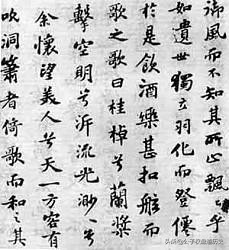 御風而不知其所止飄飄乎
如遺世獨立羽化而登僊
於是飲酒樂甚扣舷而
歌之歌曰桂棹兮蘭槳
擊空明兮泝流光渺渺兮
余懷望美人兮天一方客有
吹洞簫者倚歌而和之其
头条@子夜幽幽历史